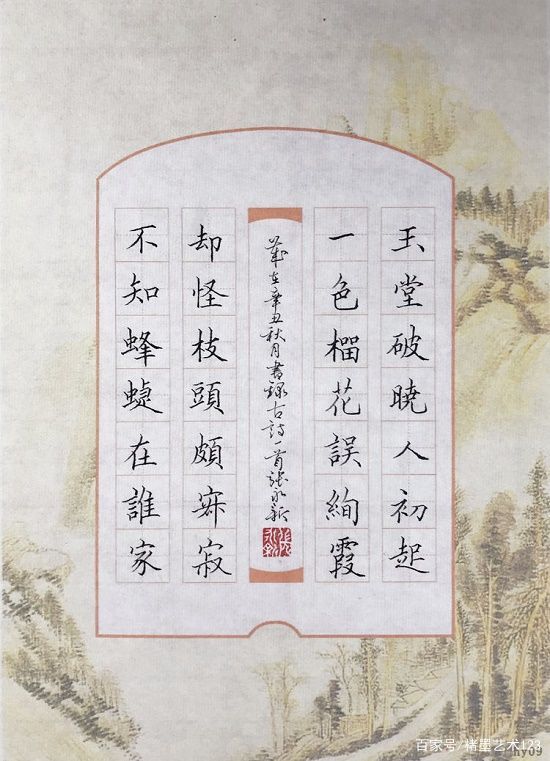 玉堂破曉人初起
一色榴花誤絢霞
歲在辛丑秋月書錄古詩一首張永新
却怪枝頭頗寂
不知蜂蜨在誰家
百家号/楮墨艺术123
hy09